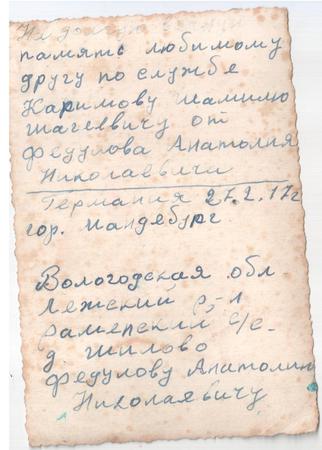 На долгую
память любимому
другу по службе
Каримову шамилю
шагеевичу от
Федулова Анатолия
Николаевичи
Германия 27.2.17г
гор. Магдебург
Вологодская обл
Лежский р-н
рамерский с/с.
д. шилово
Федулову Анатолию
Николаевичу